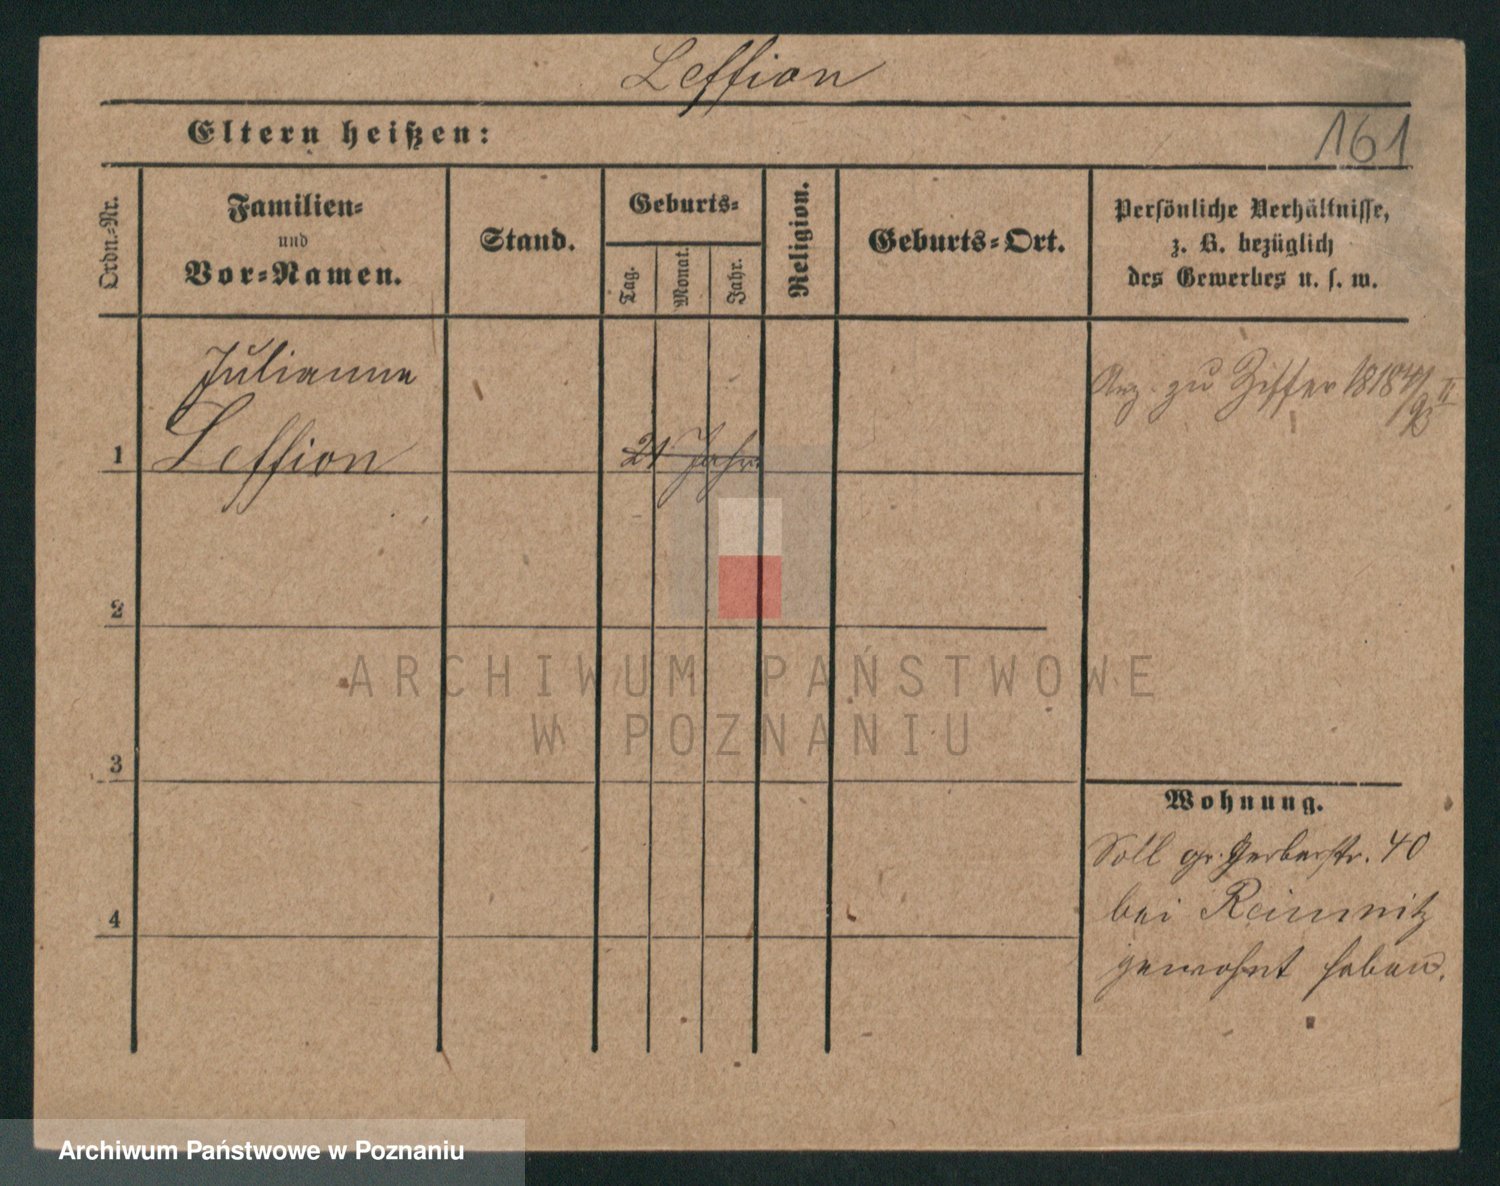 Leffion
161
Eltern heißen:
Ordn.-Nr.
Familien-
und
Vor-Namen.
Stand.
Geburts-
Tag.
Monat.
Jahr.
Religion.
Geburts-Ort.
Persönliche Verhältnisse,
z. B. bezüglich
des Gewerbes u. s. w.
Julianna
1 Leffion
21 Jahr
zu Ziffer
2
3
4
Wohnung.
Soll gr. Gerberstr. 40
bei Reimnitz
gewohnt haben.
ARCHIWUM PAŃSTWOWE
W POZNANIU
Archiwum Państwowe w Poznaniu